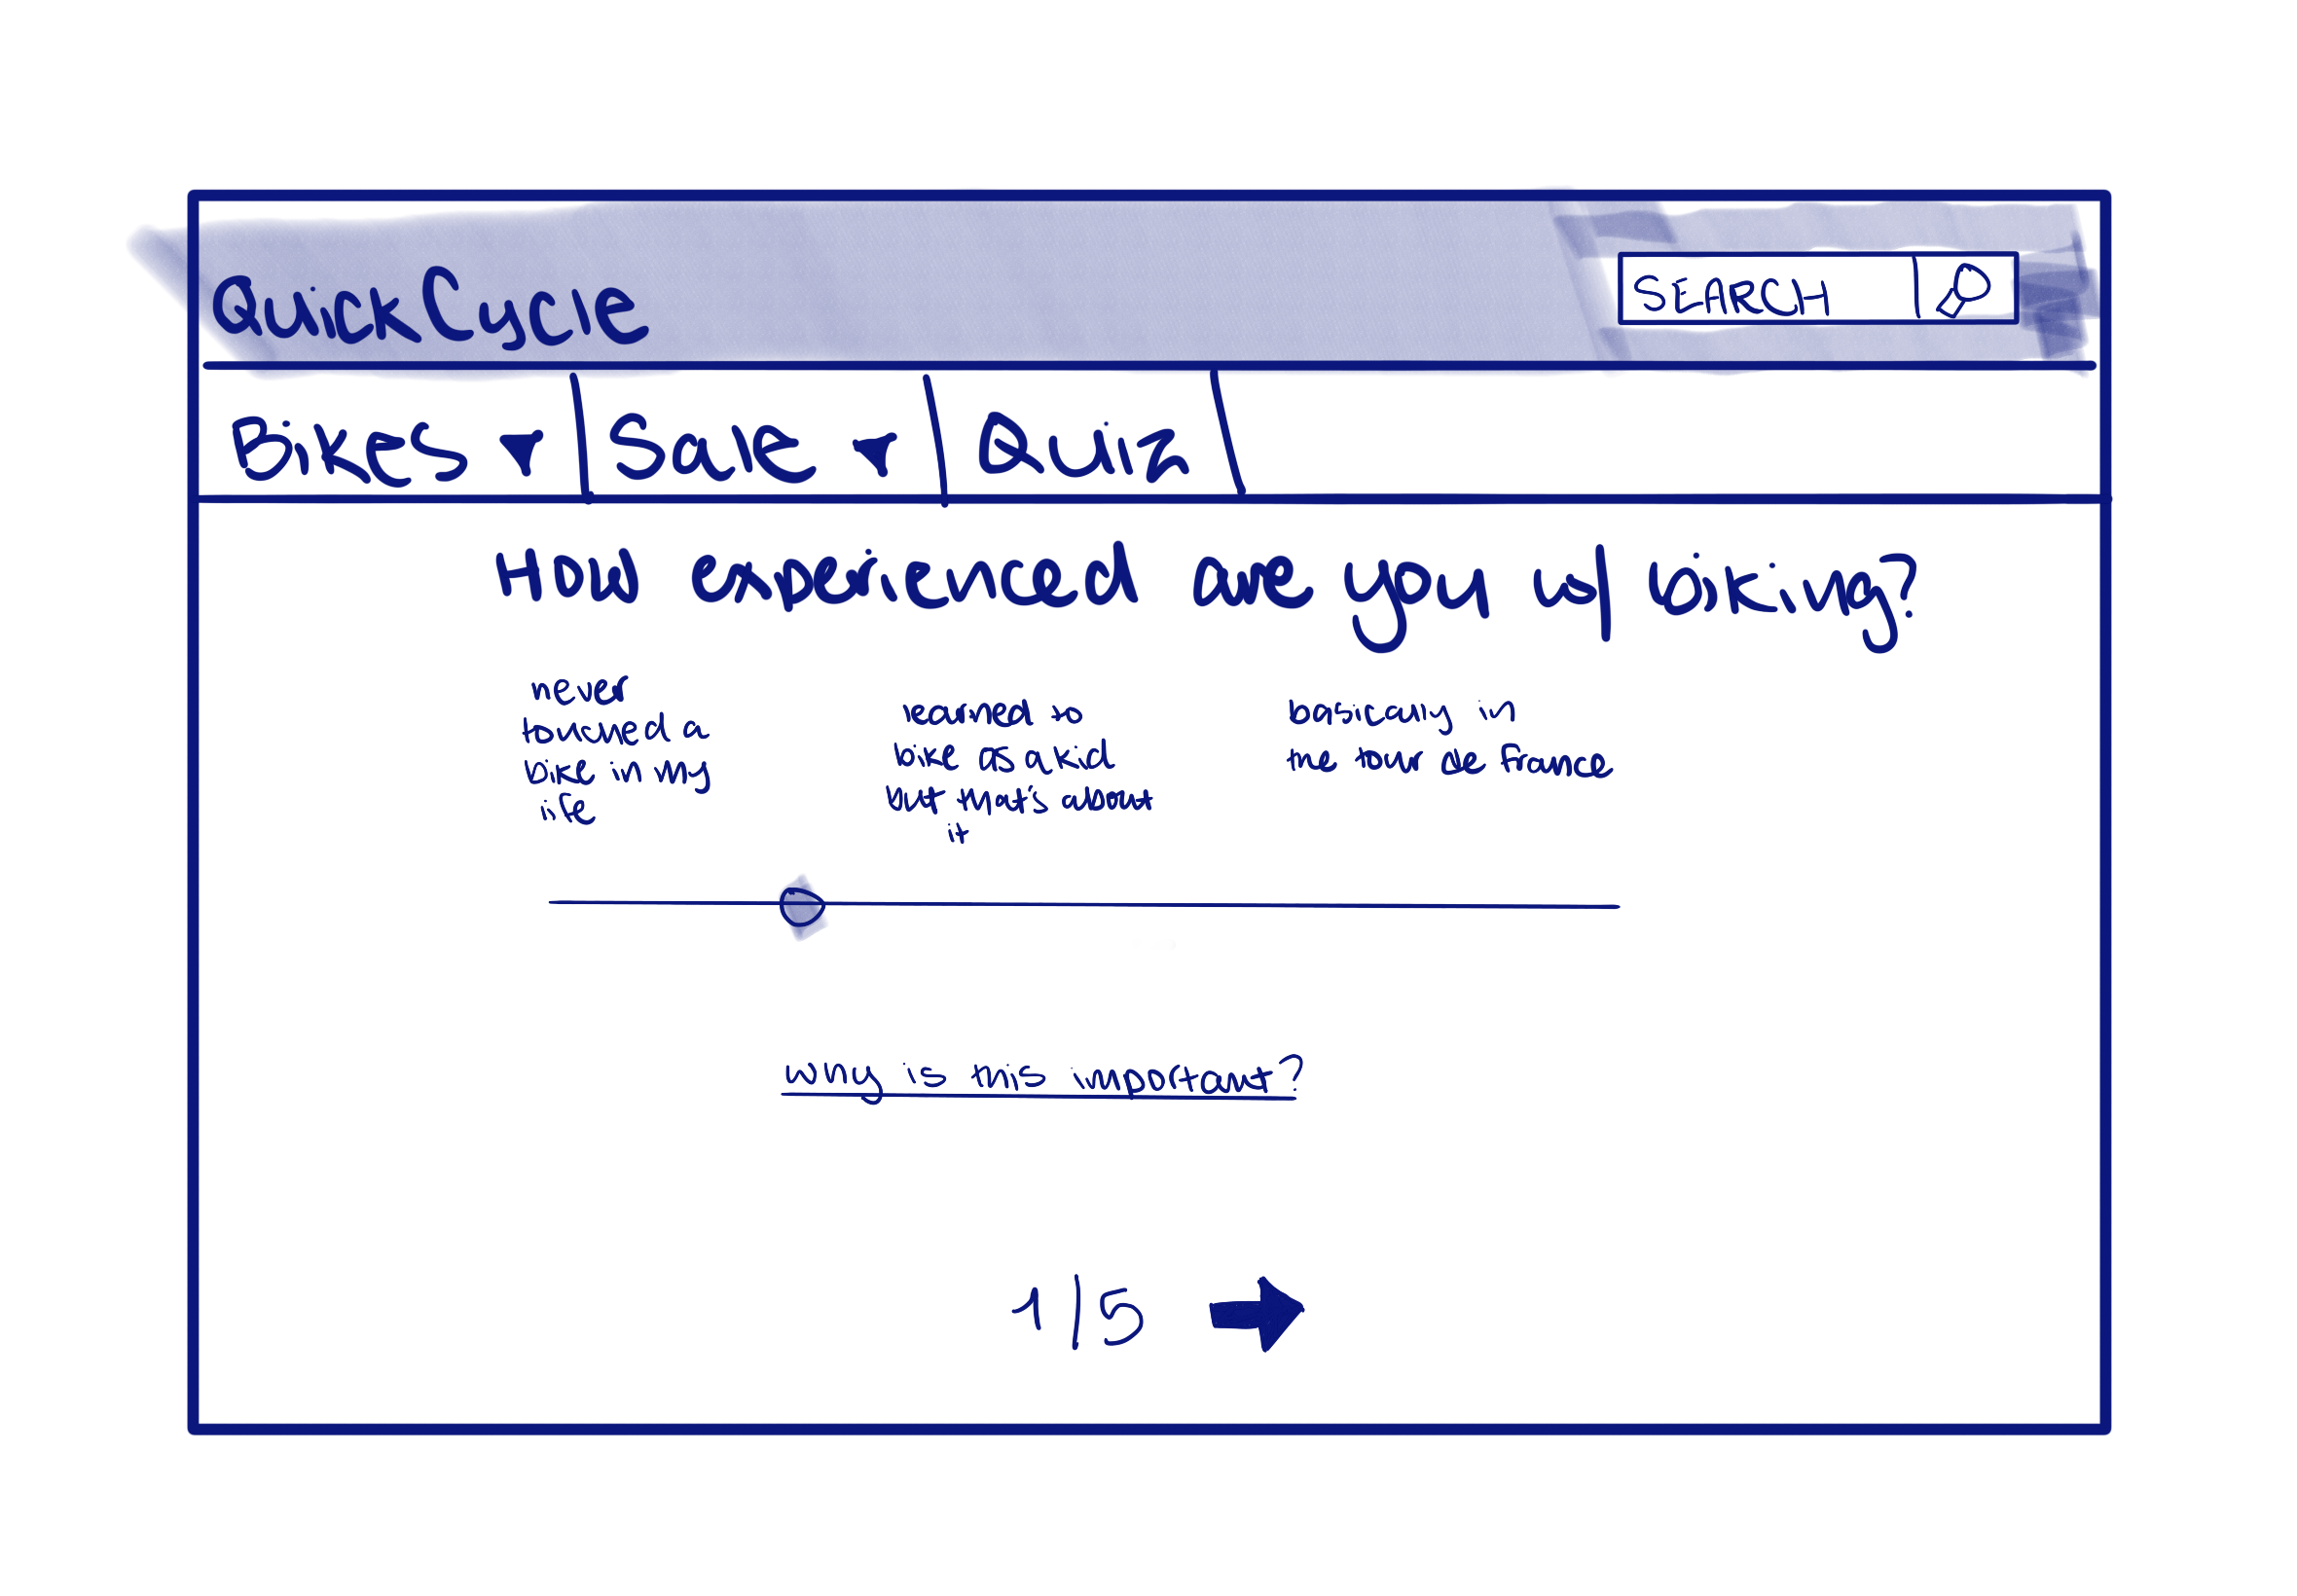 QuickCycle
SEARCH
Bikes
Sale
Quiz
How experienced are you w/ biking?
never
touched a
bike in my
life
learned to
bike as a kid
but that's about
it
basically in
the tour de france
why is this important?
1/5